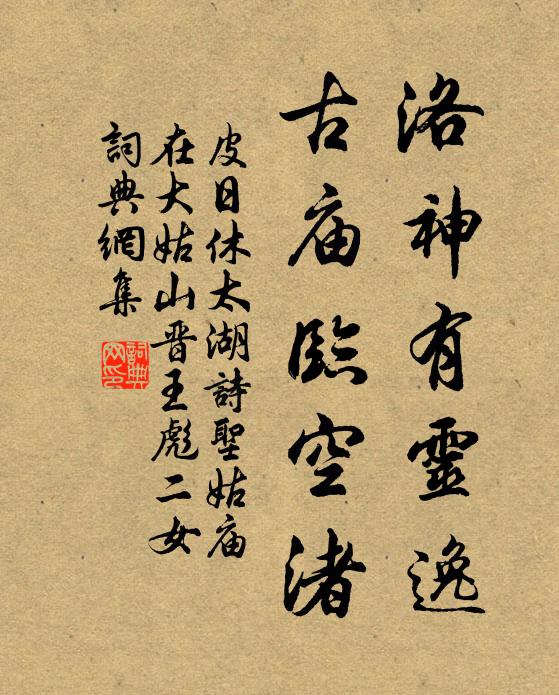 洛神有靈逸
古廟臨空渚
皮日休太湖詩聖姑廟
在大姑山晋王彪二女
詞典網集
詞典網印